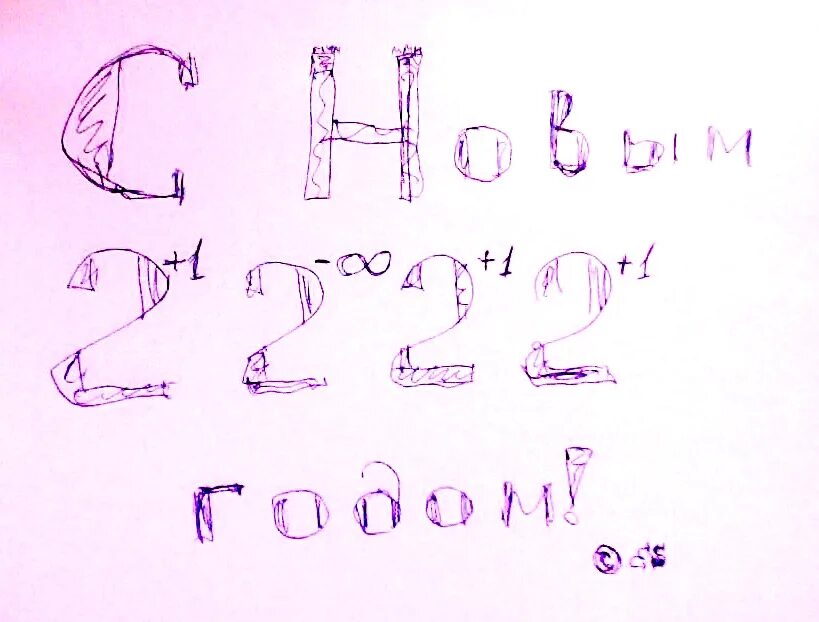 С Новым
2⁺¹ 2⁻∞ 2⁺¹ 2⁺¹
годом!
©